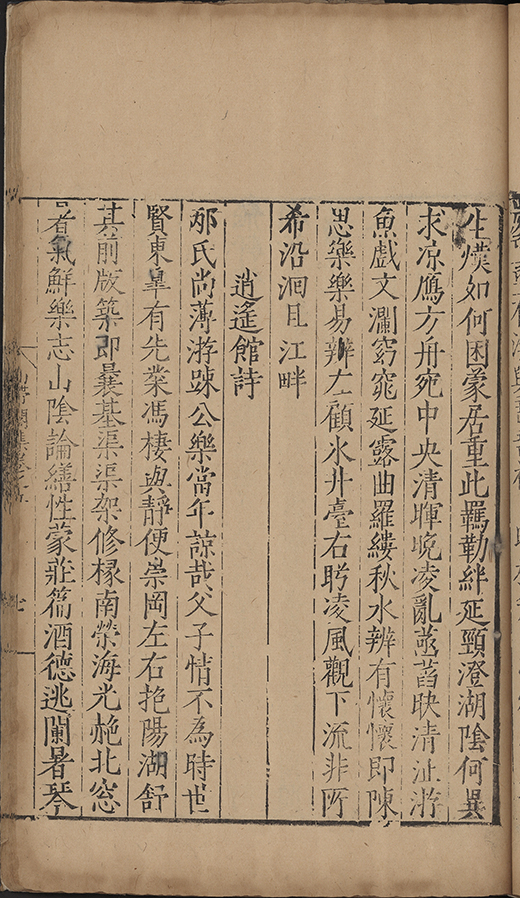 生燠如何困蒙居重此羈勒絆延頸澄湖陰何異
求凉鴈方舟宛中央清暉晚凌亂菡萏映清沚游
魚戲文瀾窈窕延露曲羅縷秋水辨有懷懷即陳
思樂樂易辨左顧氷井臺右盻凌風觀下流非所
希沿洄且江畔
逍遙館詩
邴氏尚薄游踈公樂當年諒哉父子情不為時世
賢東臯有先業馮棲與靜便崇岡左右抱陽湖舒
其前版築即曩基渠渠架修椽南榮海光赩北窓
氣鮮樂志山陰論繕性蒙莊篇酒德逃闌暑琴